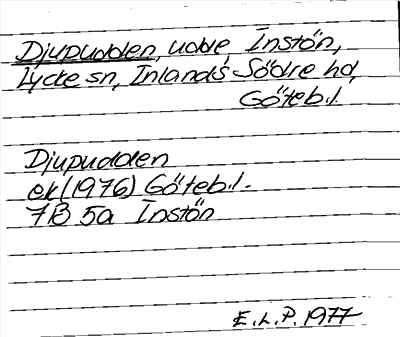 Djupudden, udde, Instön,
Lycke sn, Inlands Södre hd,
Göteb.l.
Djupudden
ek(1976) Göteb.l.
7B 5a Instön
E.L.P. 1977